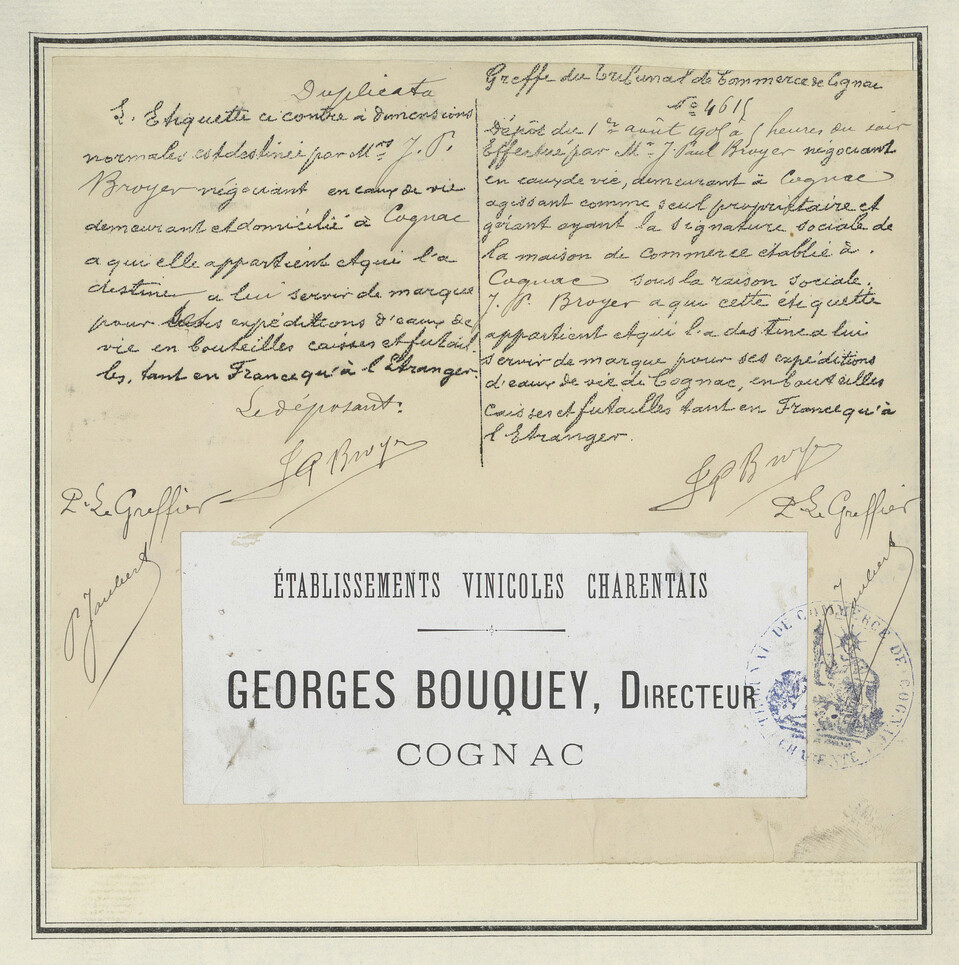 Duplicata
L. Etiquette ci contre à dimensions
normales est destinée par Mrs J. P.
Broyer négociant en eaux de vie
demeurant et domicilié à Cognac
a qui elle appartient et qui l'a
destine a lui servir de marque
pour ses expéditions d'eaux de
vie en bouteilles caisses et futail
les, tant en France qu'à l'Etranger.
Le déposant:
J P Broyer
Pr Le Greffier
P. Joubert
Greffe du Tribunal de Commerce de Cognac
No 461
Dépôt du 1er août à 5 heures du soir
Effectué par Mr J. Paul Broyer négociant
en eaux de vie, demeurant à Cognac
agissant comme seul propriétaire et
gérant ayant la signature sociale de
la maison de commerce établie à
Cognac sous la raison sociale.
J. P. Broyer a qui cette étiquette
appartient et qui l'a destine a lui
servir de marque pour ses expéditions
d'eaux de vie de Cognac, en bouteilles
caisses et futailles tant en France qu'à
l'Etranger.
J P Broyer
Pr Le Greffier
Joubert
ÉTABLISSEMENTS VINICOLES CHARENTAIS
GEORGES BOUQUEY, DIRECTEUR
COGNAC
TRIBUNAL DE COMMERCE DE COGNAC
CHARENTE